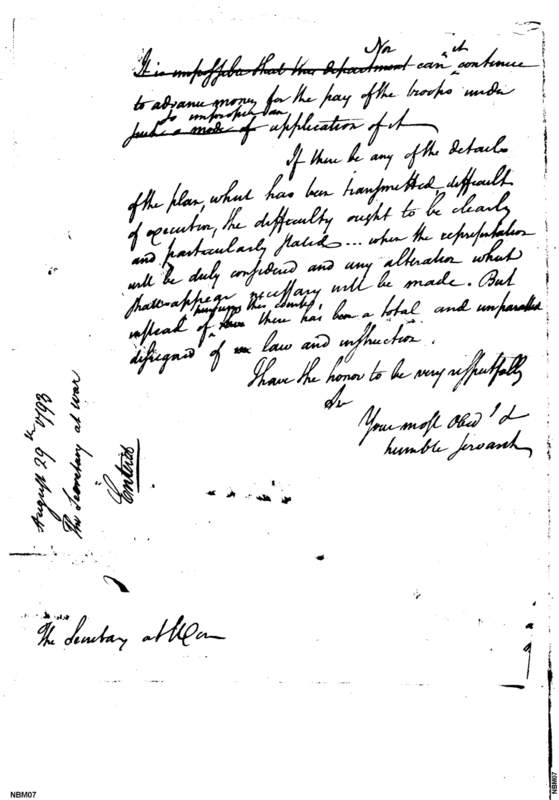 Nor it
It is impossible that this department can continue
to advance money for the pay of the troops under
so improper an
such a mode of application of it
If there be any of the details
of the plan, which has been transmitted, difficult
of execution, the difficulty ought to be clearly
and particularly stated... when the representation
will be duly considered and any alteration which
shall appear necessary will be made. But
pursuing this course
instead of there has been a total and unparalleled
disregard of law and instruction.
I have the honor to be very respectfully
Sir
Your most Obed't &
humble servant
August 29th 1793
The Secretary at war
Entered
The Secretary at War
NBM07
NBM07